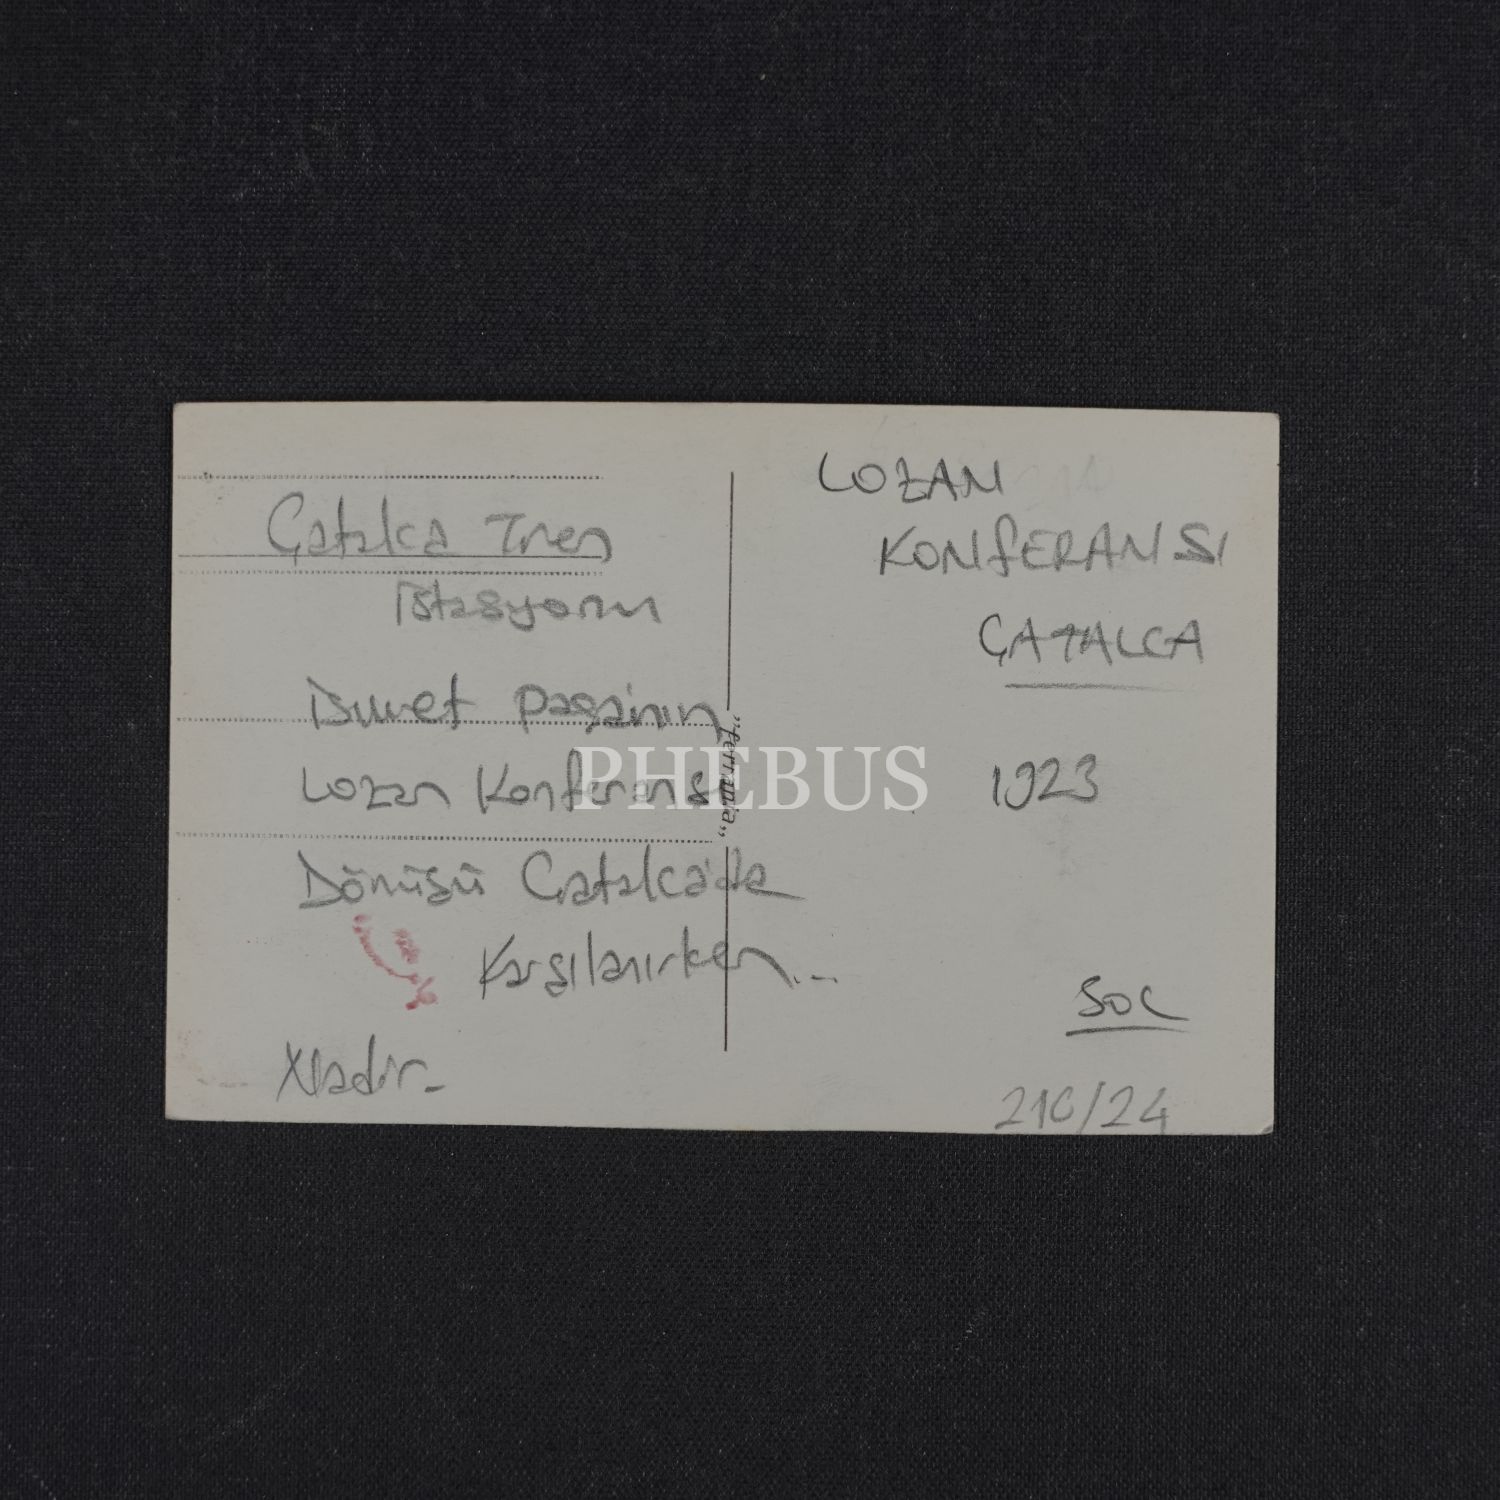 Çatalca Tren
İstasyonu
İsmet Paşa'nın
Lozan Konferansı
Dönüşü Çatalca'da
Karşılanırken...
Nadir-
LOZAN
KONFERANSI
ÇATALCA
1923
SOC
210/24
PHEBUS